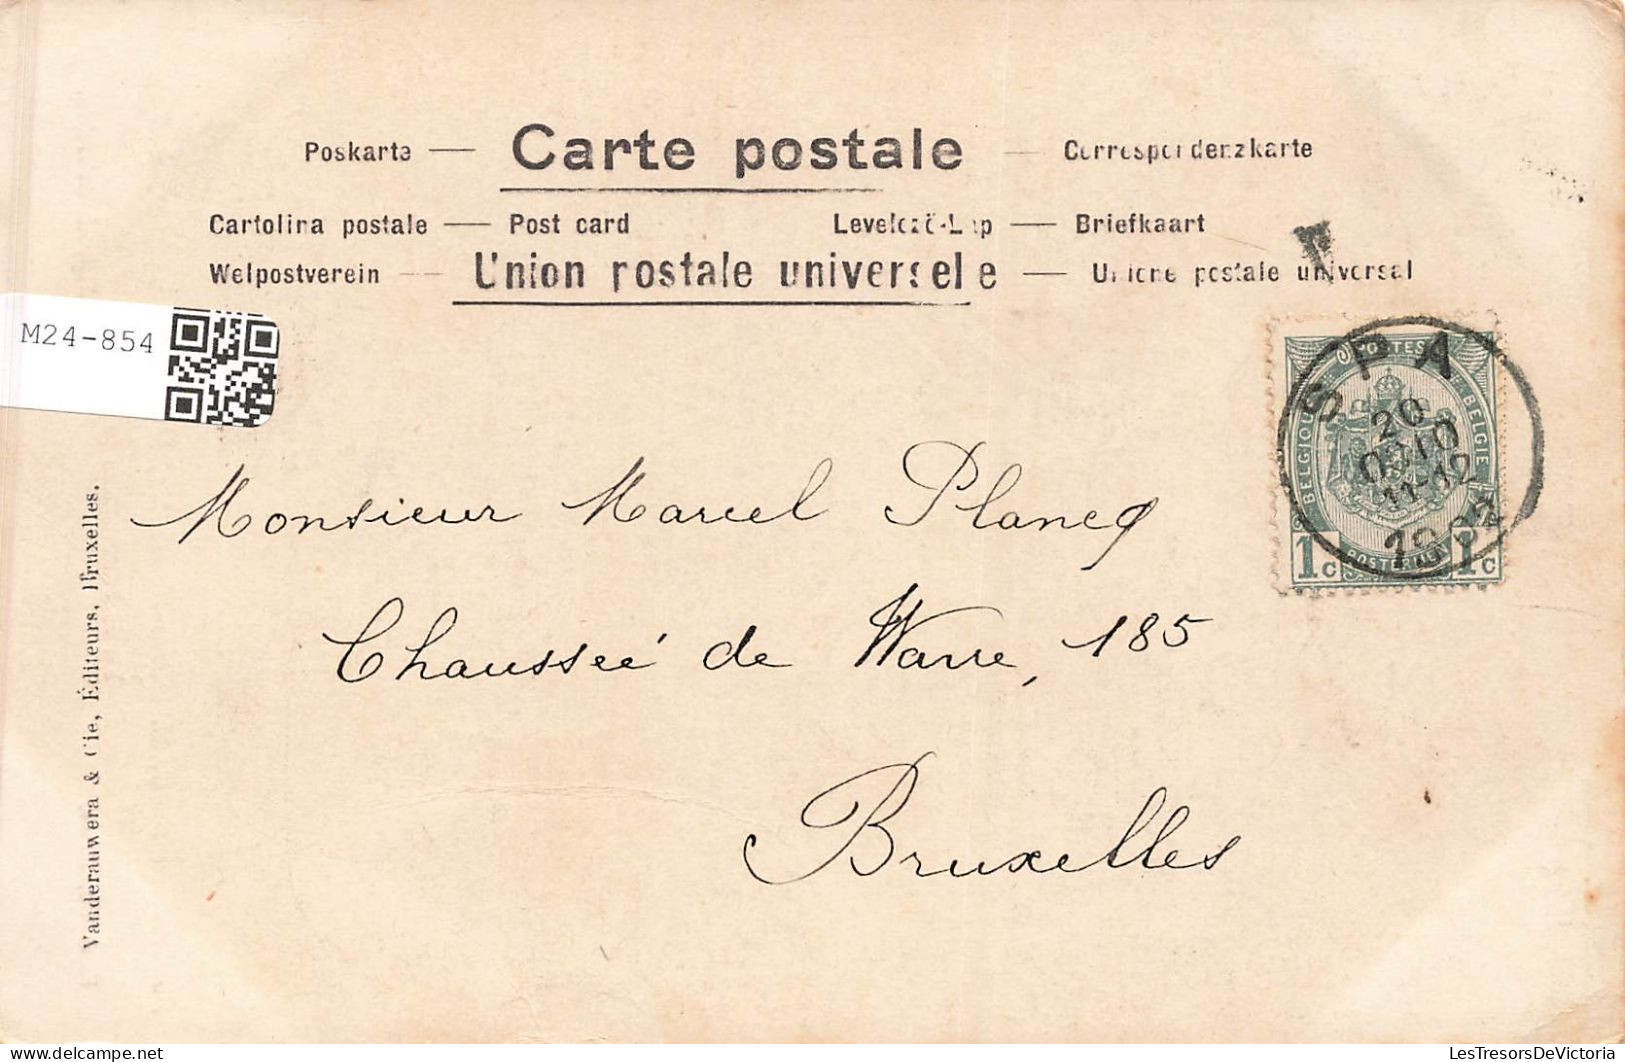 Poskarte — Carte postale — Correspondenzkarte
Cartolina postale — Post card Levelező-Lap — Briefkaart
Welpostverein — Union postale universelle — Unione postale universal
M24-854
SPA
20
11-12
POSTES
BELGIQUE
BELGIE
POSTERIJEN
1c 1c
Monsieur Marcel Plancq
Chausseé de Wavre, 185
Bruxelles
Vanderauwera & Cie, Éditeurs, Bruxelles.
LesTresorsDeVictoria